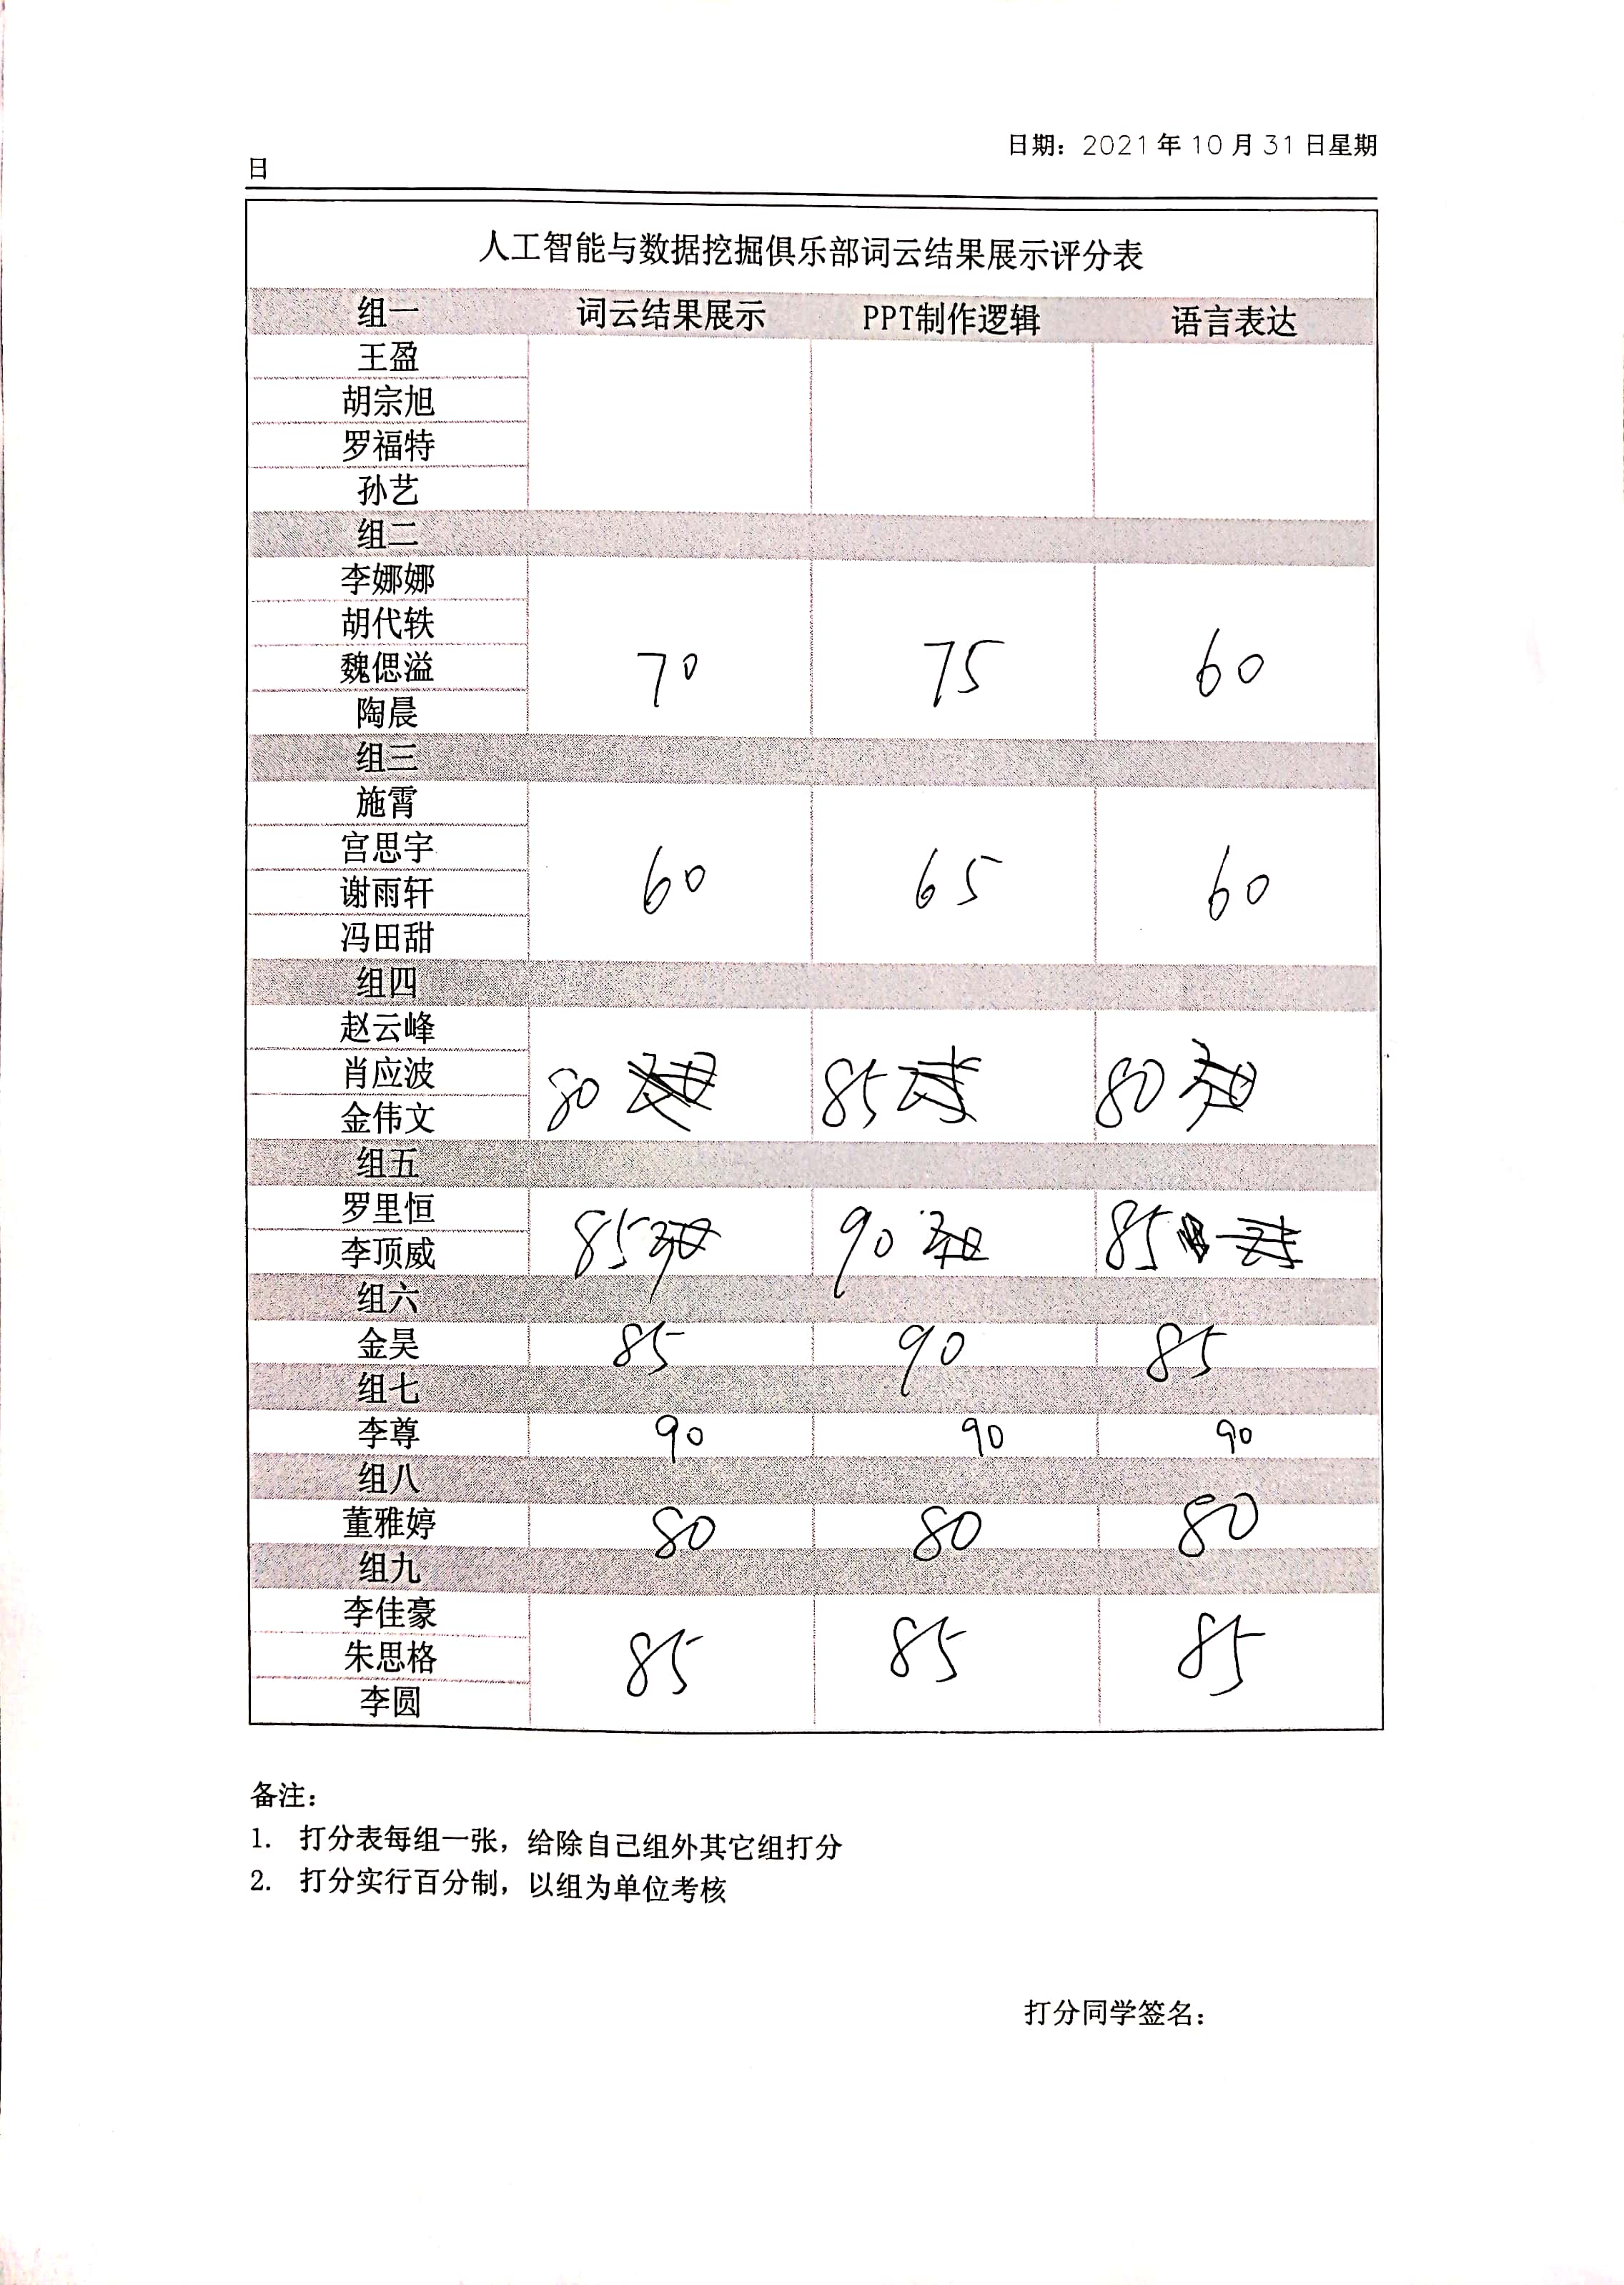 日期：2021年10月31日星期
日
人工智能与数据挖掘俱乐部词云结果展示评分表
组一 词云结果展示 PPT制作逻辑 语言表达
王盈
胡宗旭
罗福特
孙艺
组二
李娜娜
胡代轶
魏偲溢 70 75 60
陶晨
组三
施霄
宫思宇
谢雨轩 60 65 60
冯田甜
组四
赵云峰
肖应波 80 85 80
金伟文
组五
罗里恒
李顶威 85 90 85
组六
金昊 85 90 85
组七
李尊 90 90 90
组八
董雅婷 80 80 80
组九
李佳豪
朱思格 85 85 85
李圆
备注：
1. 打分表每组一张，给除自己组外其它组打分
2. 打分实行百分制，以组为单位考核
打分同学签名：